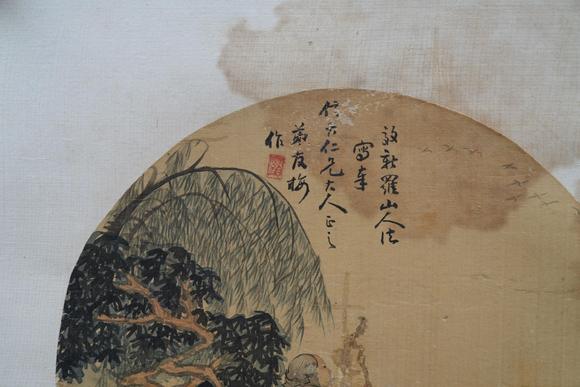 效新羅山人法
寫奉
仁兄大人正之
友梅
作